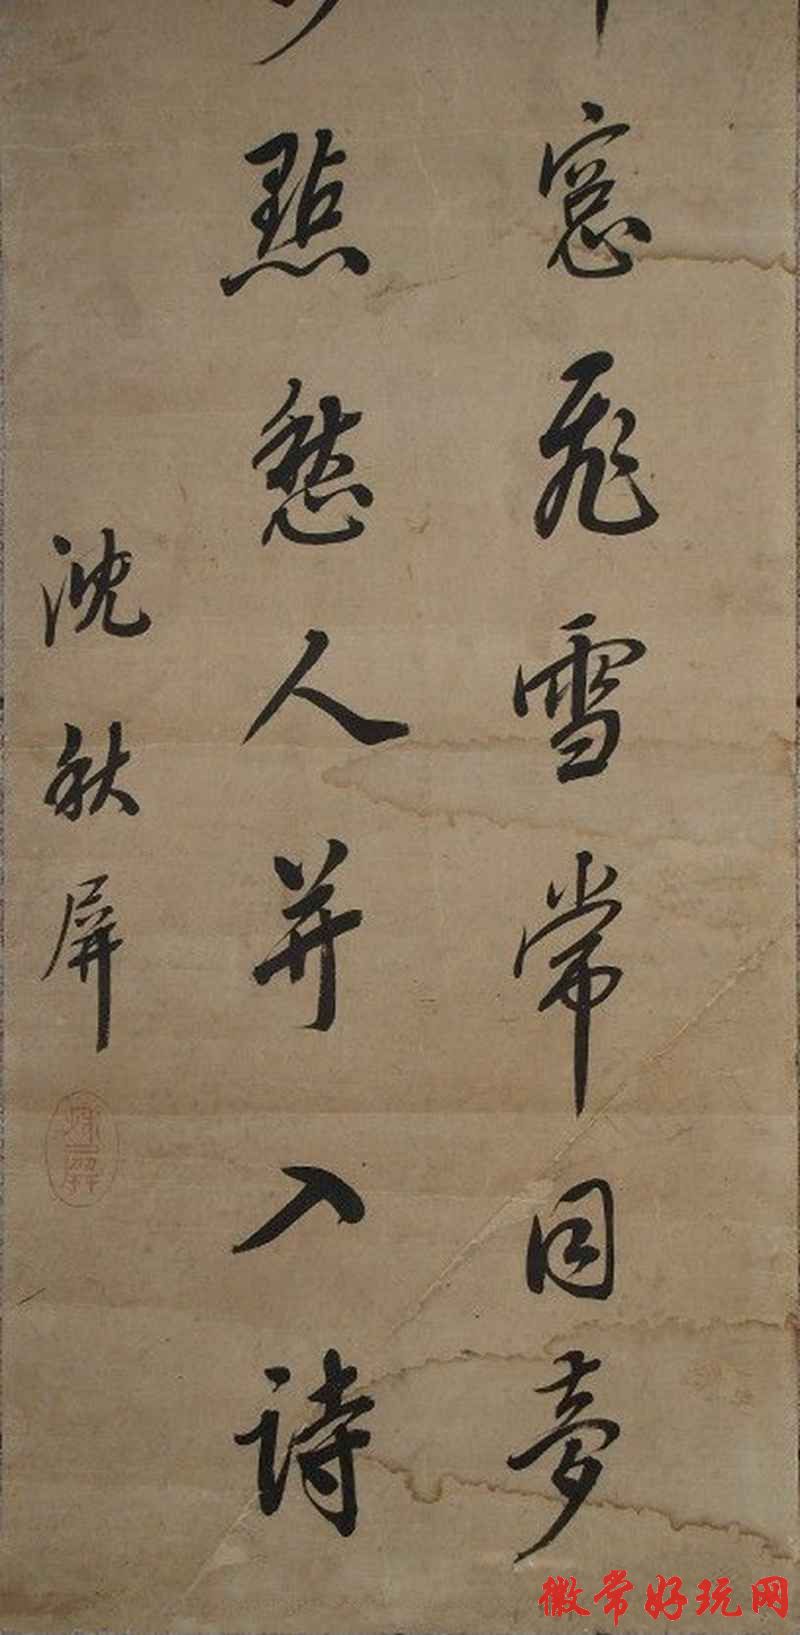 窓飛雪常同夢
點愁人并入詩
沈秋屏
徽常好玩网